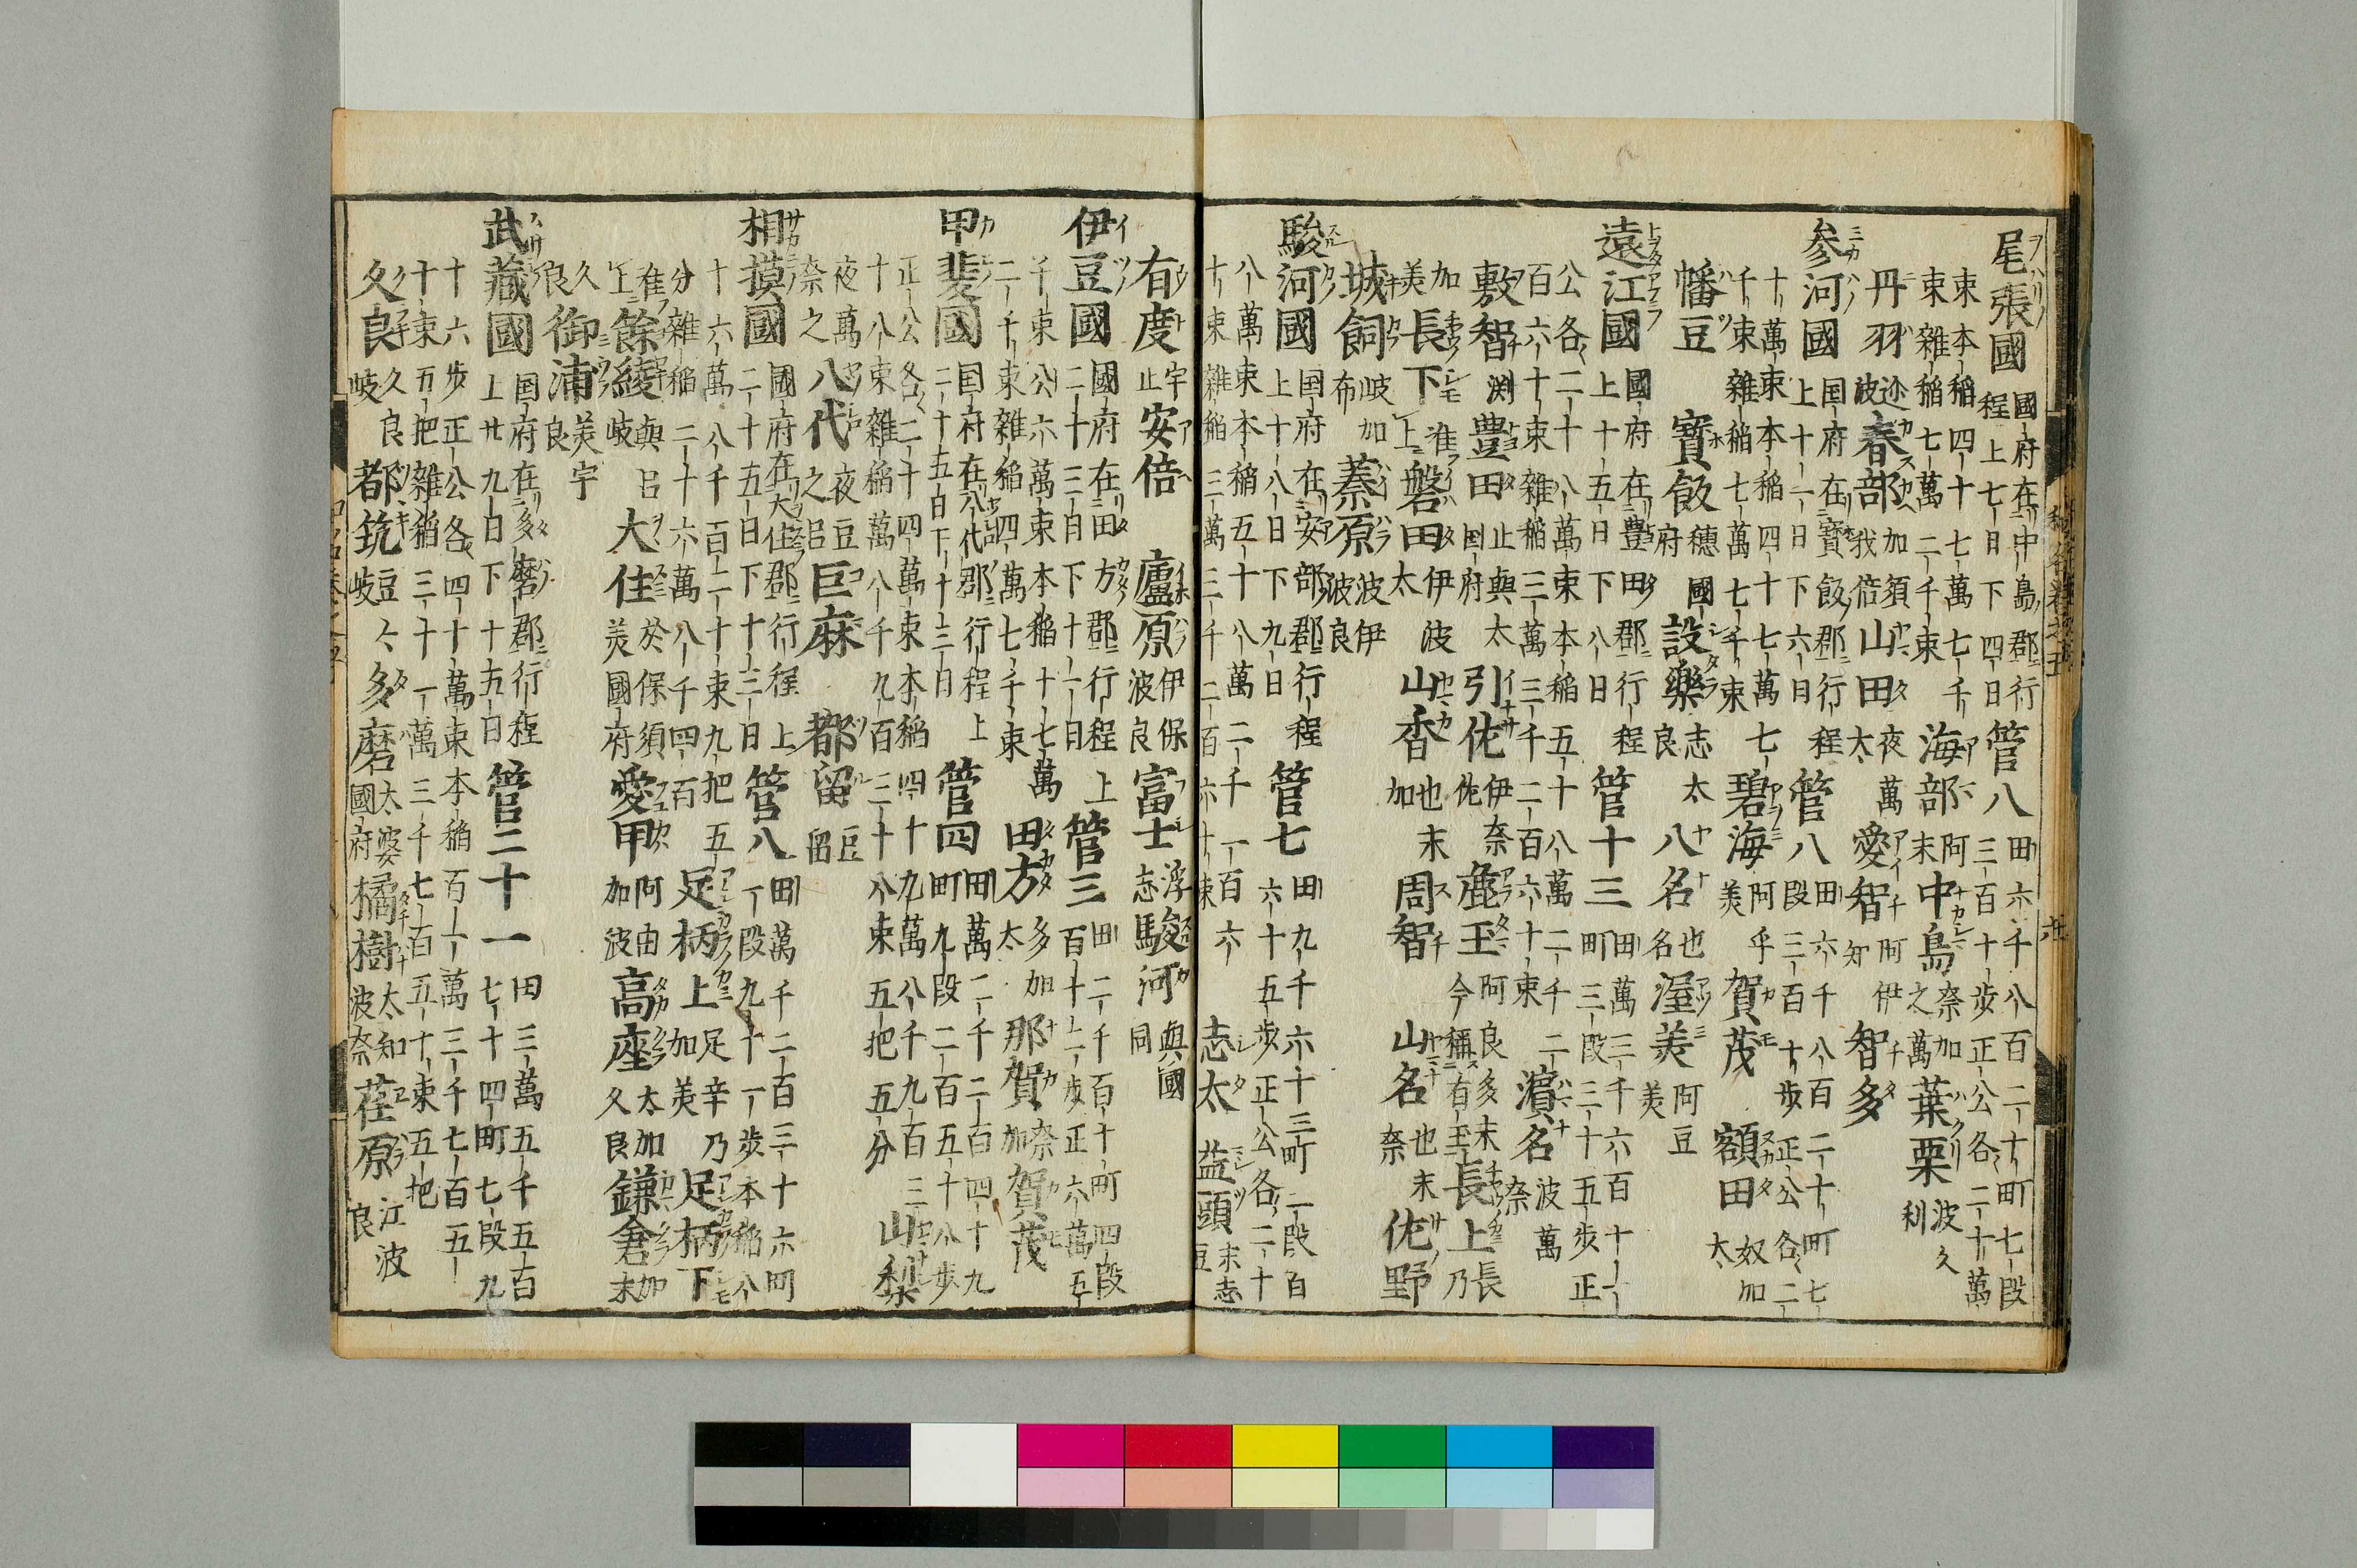 尾張國 國府在中島郡行程上七日下四日 管八 田六千八百二十町七段三百十歩正公各二十萬
束本稲四十七萬七千束雜稲七萬二千束 海部 阿末 中島 奈加之萬 葉栗 波久利
丹羽 迩波 春部 加須我倍 山田 夜萬太 愛智 阿伊知 智多
参河國 国府在寶飯郡行程上十一日下六日 管八 田六千八百二十町七段三百十歩正公各二
十萬束本稲四十七萬七千束雜稲七萬七千束 碧海 阿乎美 賀茂 額田 奴加太
幡豆 寶飯 穂國府 設樂 志太良 八名 也名 渥美 阿豆美
遠江國 國府在豊田郡行程上十五日下八日 管十三 田萬三千六百十一町三段三十五歩正
公各二十八萬束本稲五十八萬二千二百六十束雜稲三萬三千二百六十束 濱名 波萬奈
敷智 渕 豊田 止與太国府 引佐 伊奈佐 麁玉 阿良多末今稱有玉 長上 長乃
加美 長下 准上 磐田 伊波太 山香 也末加 周智 山名 也末奈 佐野
城飼 岐加布 蓁原 波伊波良
駿河國 国府在安部郡行程上十八日下九日 管七 田九千六十三町二段百六十五歩正公各二十
八萬束本稲五十八萬二千一百六十束雜稲三萬三千二百六十束 志太 益頭 末志豆
有度 宇止 安倍 廬原 伊保波良 富士 浮志 駿河 與國同
伊豆國 國府在田方郡行程上二十三日下十一日 管三 田二千百十町四段百十二歩正六萬五
千束公六萬束本稲十七萬二千束雜稲四萬七千束 田方 多加太 那賀 奈加 賀茂
甲斐國 国府在八代郡行程上二十五日下十三日 管四 田萬二千二百四十九町九段二百五十八歩
正公各二十四萬束本稲四十九萬八千九百三十八束雜稲萬八千九百三十八束五把五分 山梨
夜萬奈之 八代 夜豆之呂 巨麻 都留 豆留
相摸國 國府在大住郡行程上二十五日下十三日 管八 田萬千二百三十六町一段九十一歩本稲八
十六萬八千百二十束九把五分雜稲二十六萬八千四百 足柄上 足辛乃加美 足柄下
准上 餘綾 與呂岐 大住 於保須美國府 愛甲 阿由加波 高座 太加久良 鎌倉 加末
久良 御浦 美宇良
武藏國 国府在多磨郡行程上廿九日下十五日 管二十一 田三萬五千五百七十四町七段九
十六歩正公各四十萬束本稲百十一萬三千七百五十束五把雜稲三十一萬三千七百五十束五把
久良 久良岐 都筑 豆々岐 多磨 太婆國府 橘樹 太知波奈 荏原 江波良